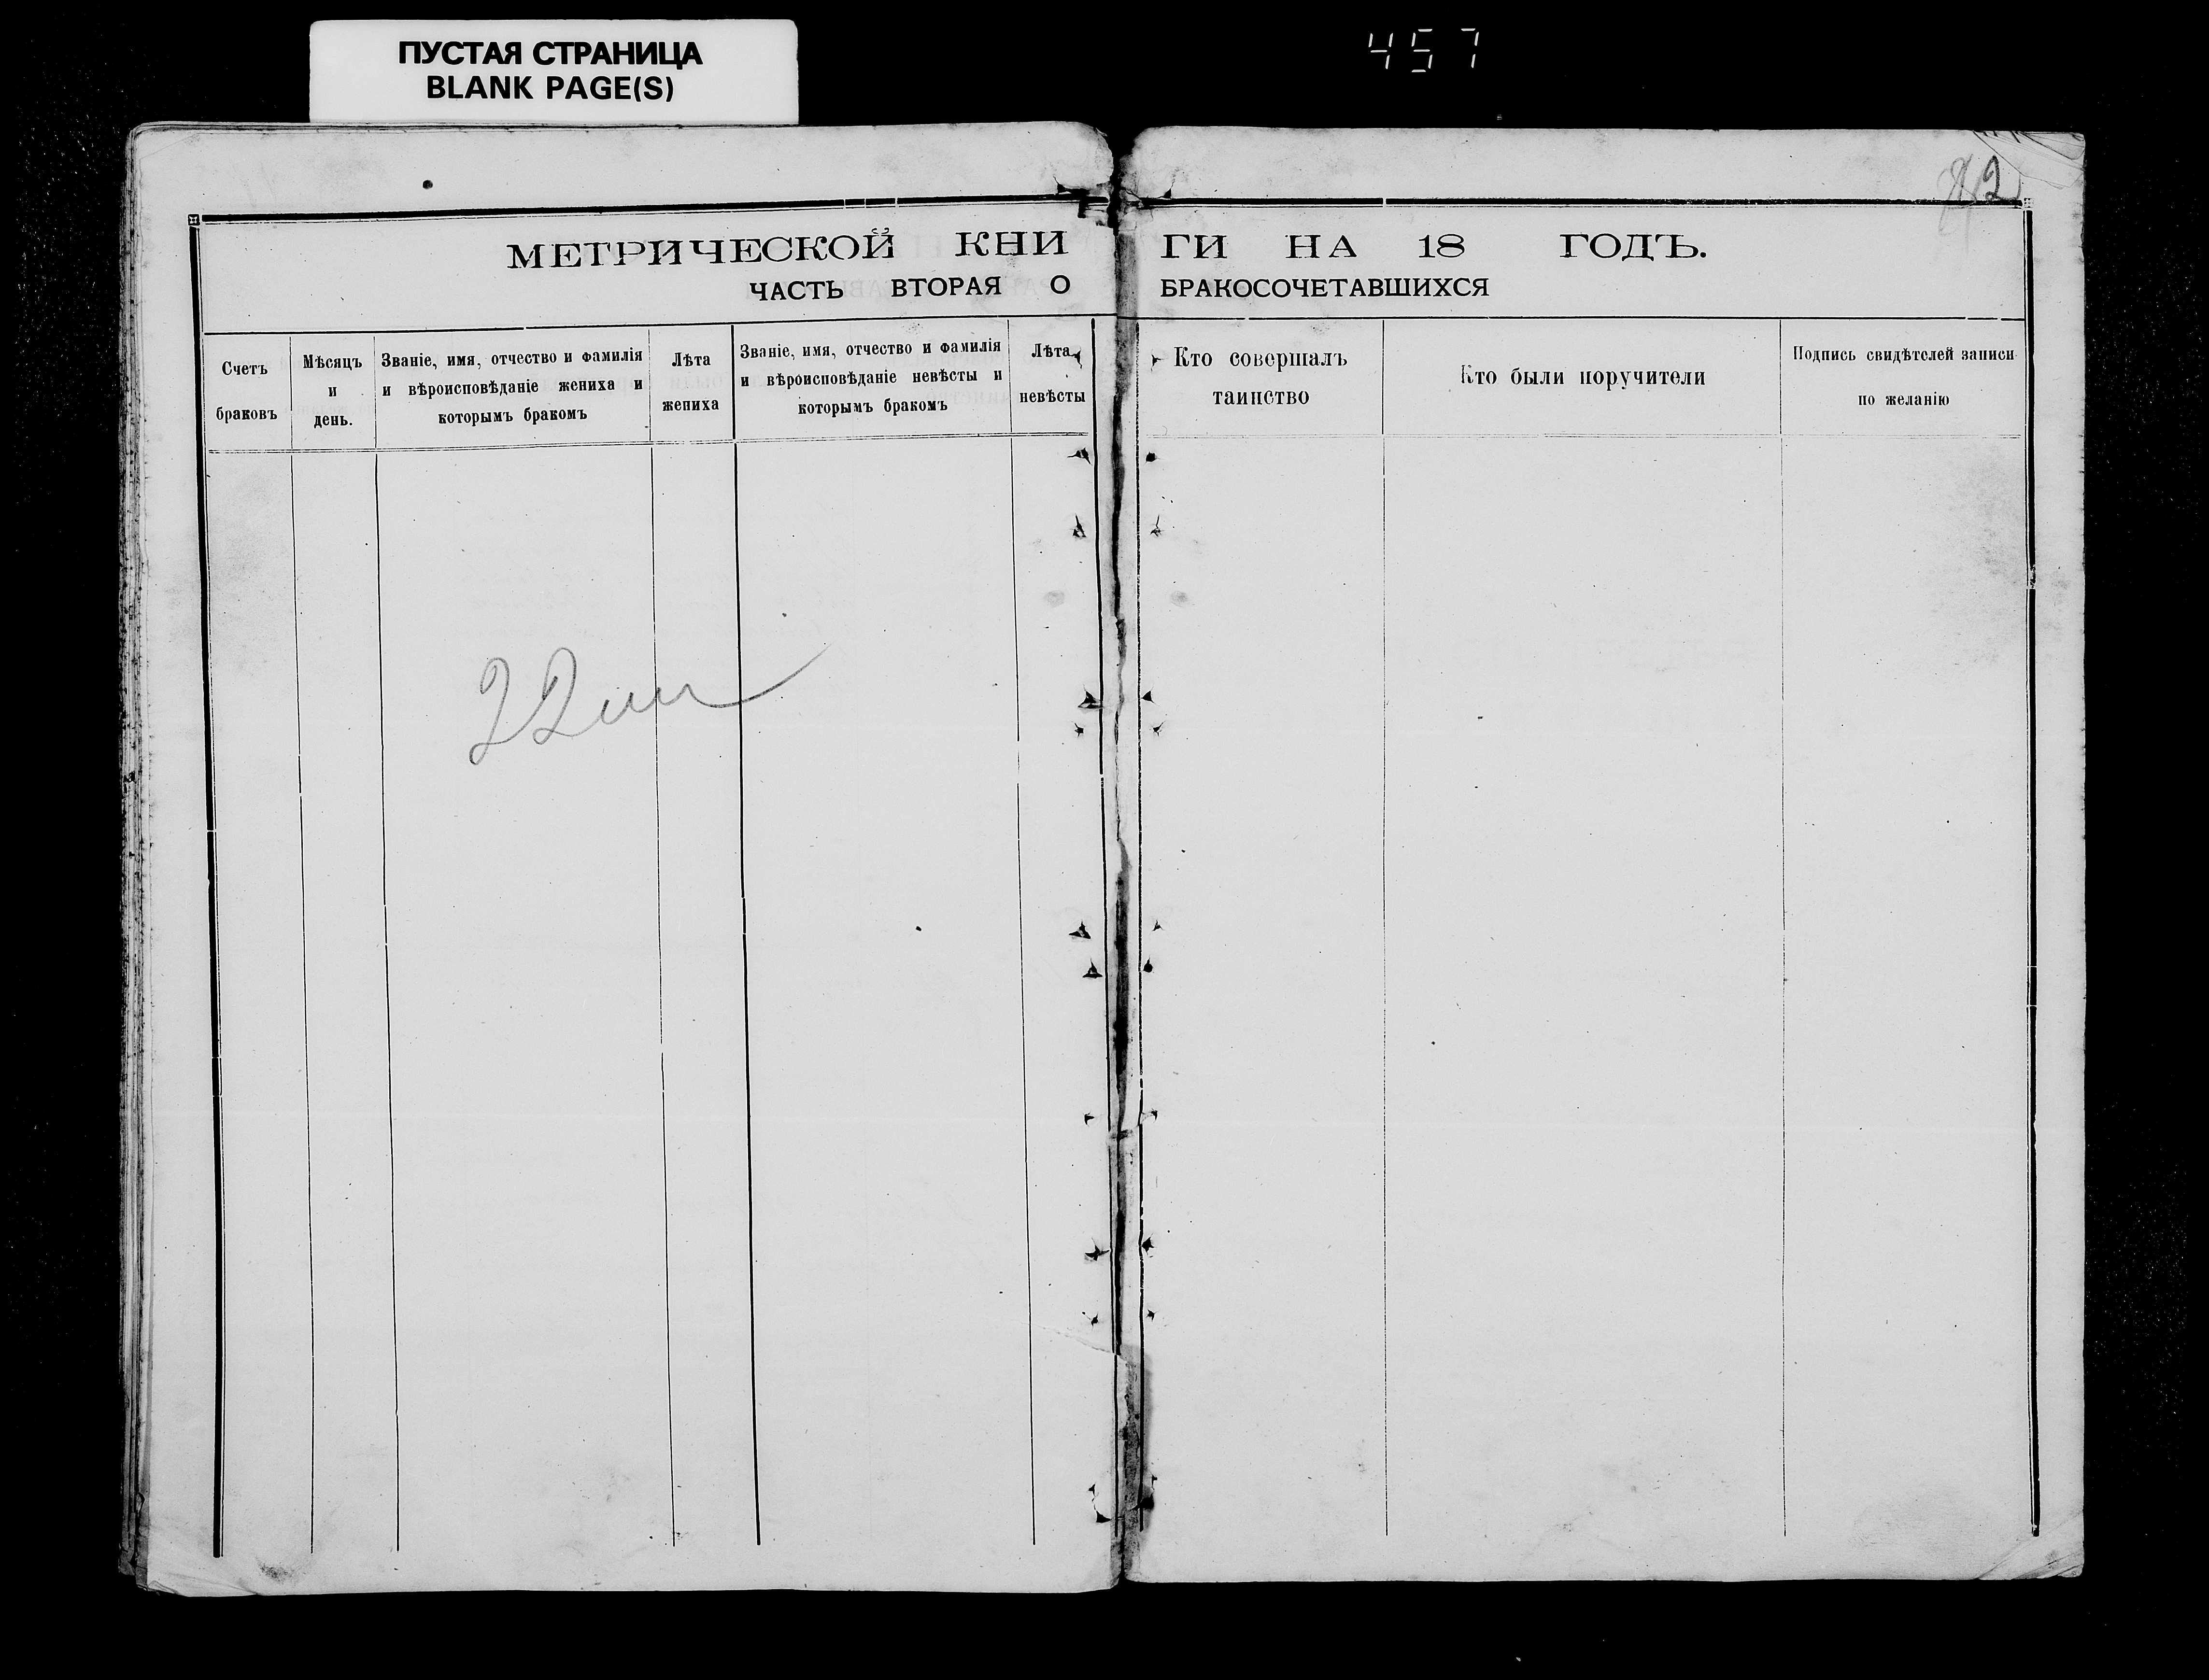 ПУСТАЯ СТРАНИЦА
BLANK PAGE(S)
457
МЕТРИЧЕСКОЙ КНИ ГИ НА 18 ГОДЪ.
ЧАСТЬ ВТОРАЯ О БРАКОСОЧЕТАВШИХСЯ
Счетъ
браковъ
Мѣсяцъ
и
день.
Званіе, имя, отчество и фамилія
и вѣроисповѣданіе жениха и
которымъ бракомъ
Лѣта
жениха
Званіе, имя, отчество и фамилія
и вѣроисповѣданіе невѣсты и
которымъ бракомъ
Лѣта
невѣсты
Кто совершалъ
таинство
Кто были поручители
Подпись свидѣтелей записи
по желанію